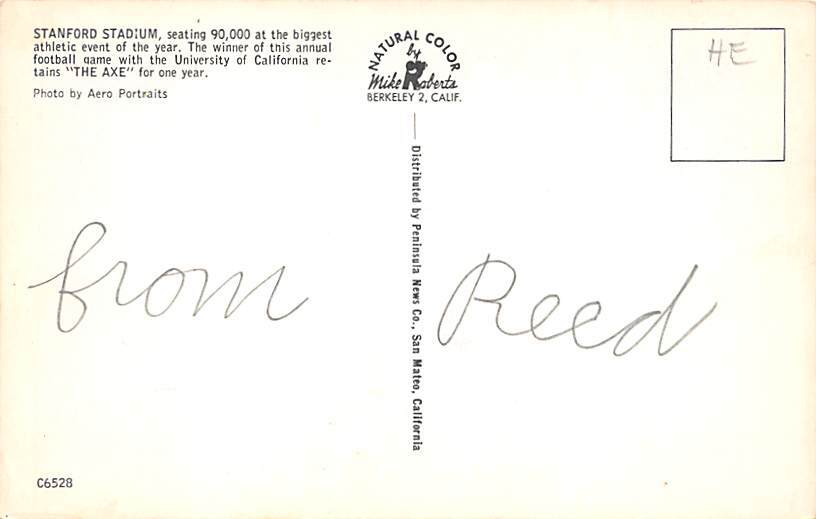 STANFORD STADIUM, seating 90,000 at the biggest
athletic event of the year. The winner of this annual
football game with the University of California re-
tains "THE AXE" for one year.
Photo by Aero Portraits
NATURAL COLOR
by
Mike Roberts
BERKELEY 2, CALIF.
HE
Distributed by Peninsula News Co., San Mateo, California
from Reed
C6528